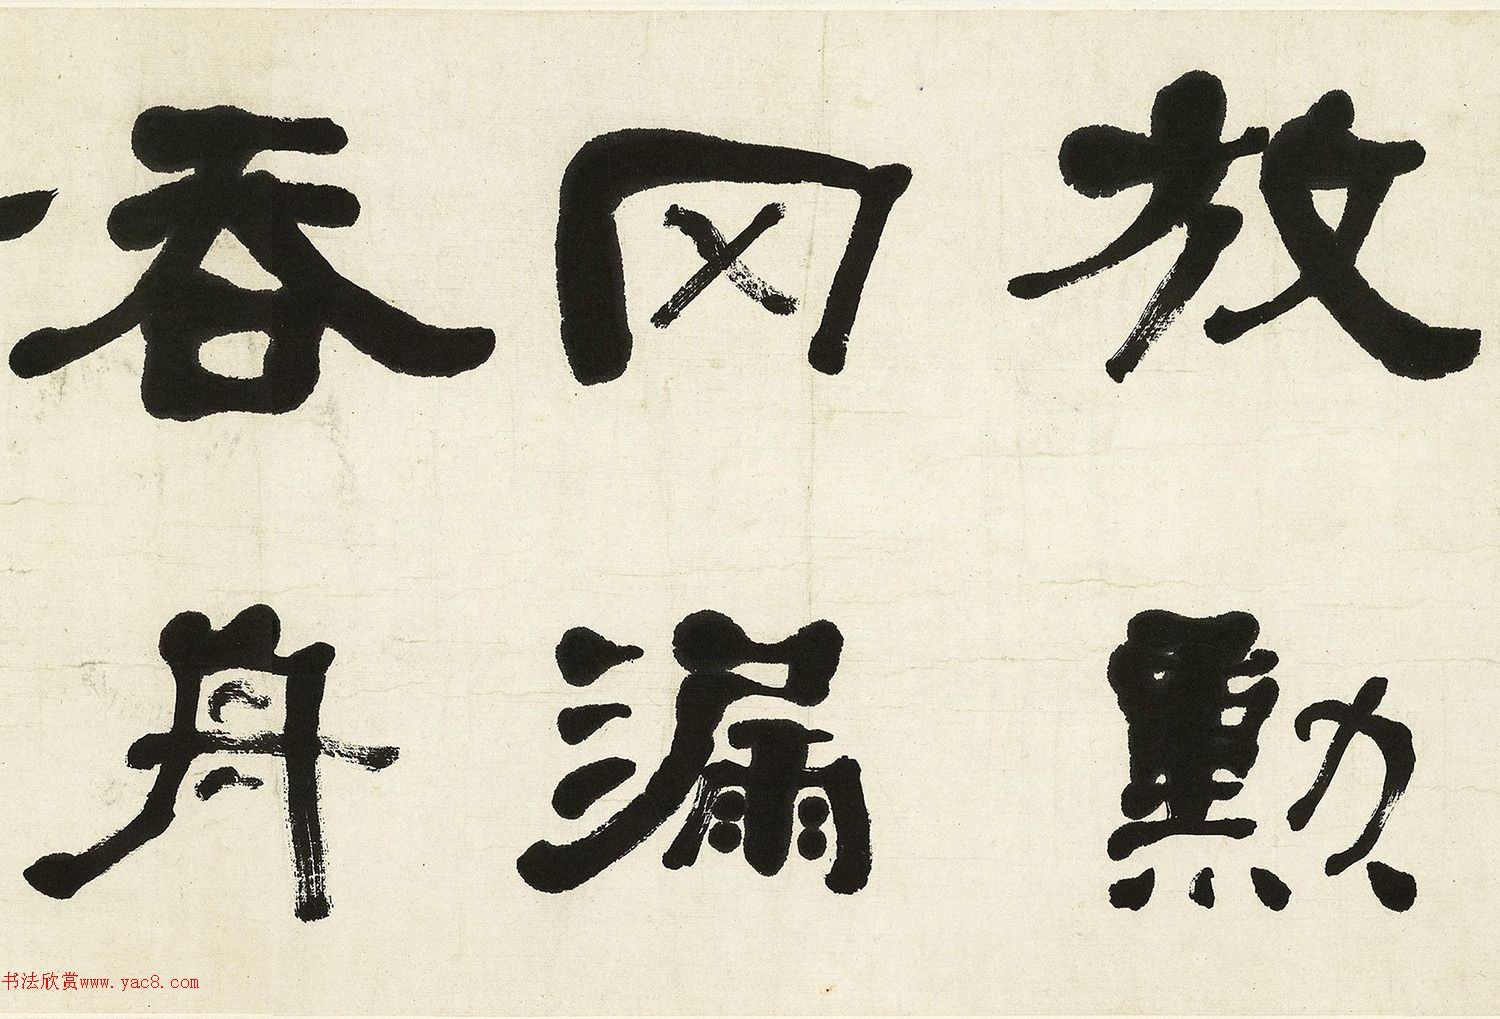 放勳
冈漏
吞舟
书法欣赏www.yac8.com